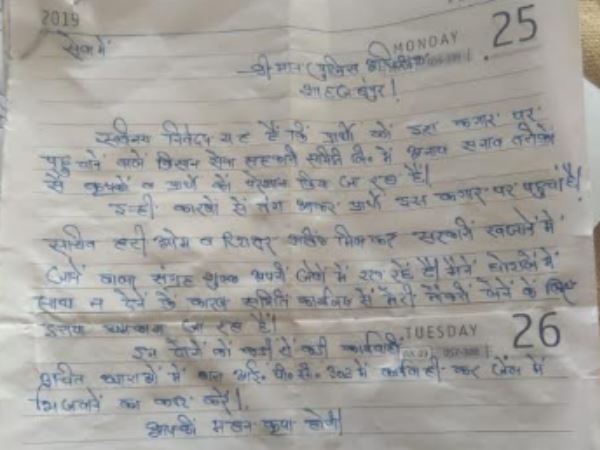 2019
सेवा में
MONDAY 25
श्रीमान पुलिस अधिक्षक
शाहजहांपुर।
सविनय निवेदन यह है कि प्रार्थी को इस कगार पर
पहुंचाने वाले किसान सेवा सहकारी समिति लि. में
से कृषकों व प्रार्थी को परेशान किया जा रहा है।
इन्ही कारणों से तंग आकर प्रार्थी इस कगार पर पहुंचा है।
सचिव हरी ओम व मिलकर सरकारी खजाने में
जाने वाला संग्रह शुल्क अपनी जेबों में रख रहे हैं। मैंने
साथ न देने के कारण समिति कार्यालय से मेरी लेने के लिए
जा रहा है।
TUESDAY 26
इन दोनों को कड़ी से कड़ी कार्यवाही
उचित धाराओं में आई. पी. सी. 302 में कार्यवाही कर जेल में
भिजवाने का कष्ट करें।
आपकी महान कृपा होगी